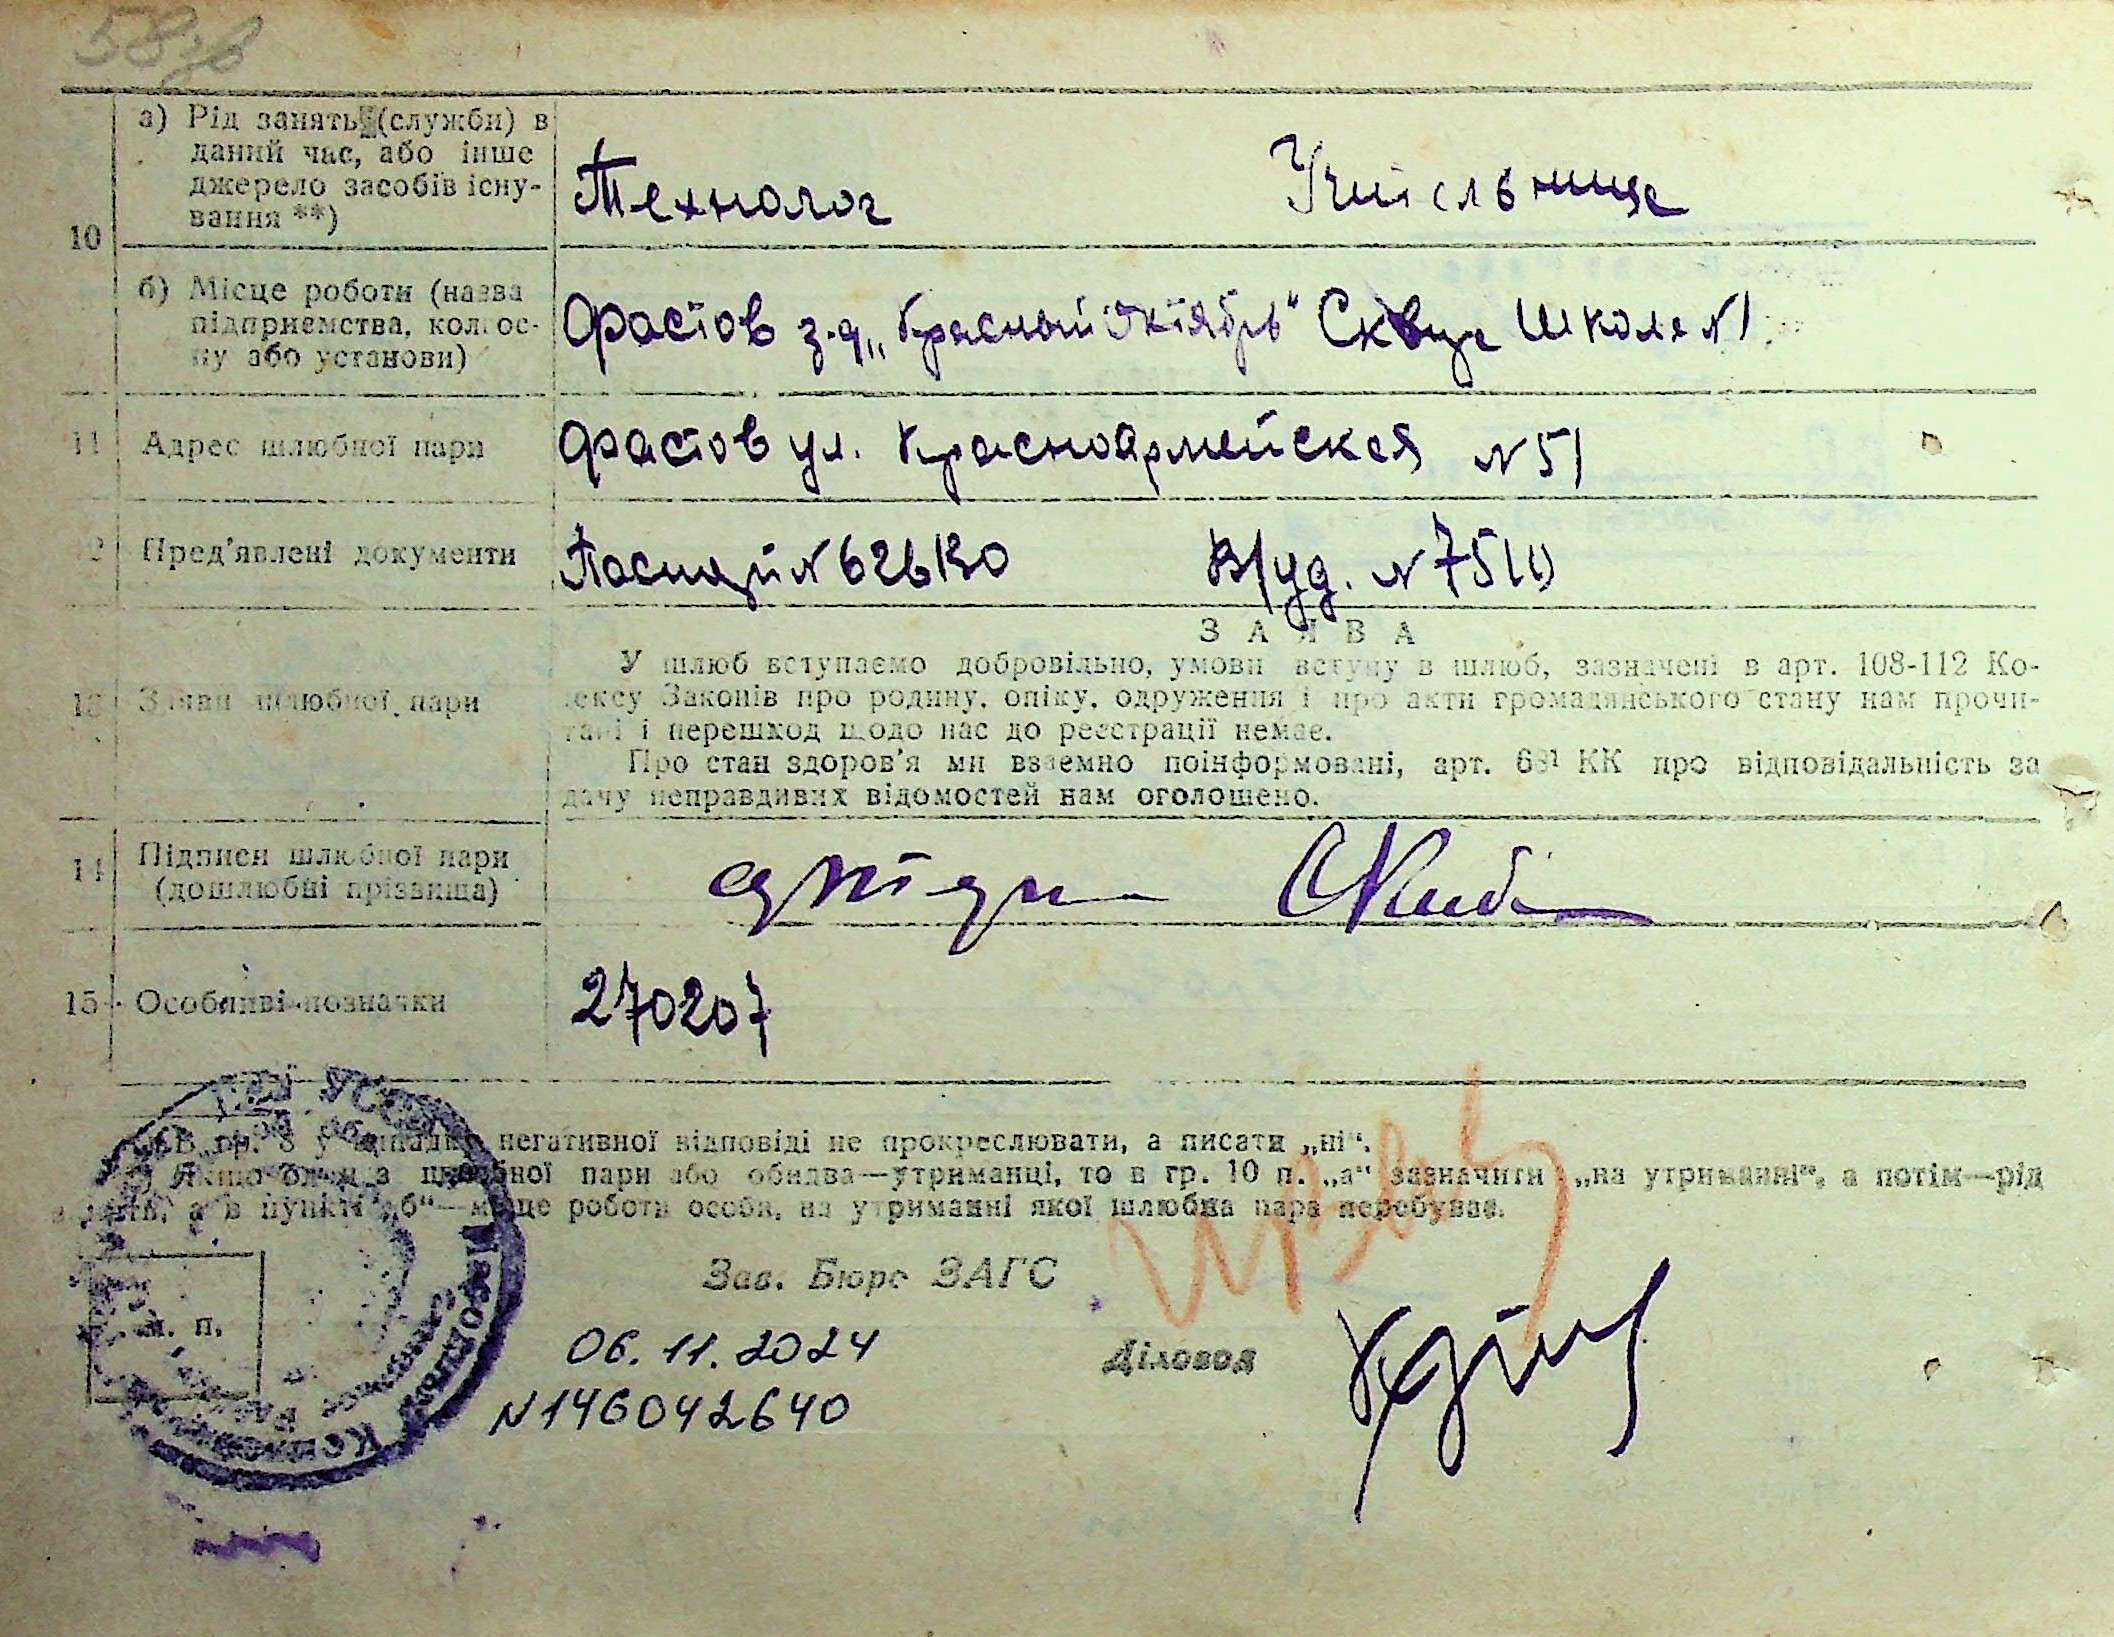 58зв
а) Рід занять (службн) в
даний час, або інше
джерело засобів існу-
вання **)
10
Технолог
Учительница
б) Місце роботи (назва
підприємства, колгос-
пу або установи)
Фастов з-д „Красный Октябрь" Сквира Школа №1
11
Адрес шлюбної пари
Фастов ул. Красноармейская №51
12
Пред'явлені документи
Паспорт №626130
В/уд. №7510
ЗАЯВА
13
Заяви шлюбної пари
У шлюб вступаємо добровільно, умови вступу в шлюб, зазначені в арт. 108-112 Ко-
дексу Законів про родину, опіку, одруження і про акти громадянського стану нам прочи-
тані і перешкод щодо нас до реєстрації немає.
Про стан здоров'я ми взаємно поінформовані, арт. 68¹ КК про відповідальність за
дачу неправдивих відомостей нам оголошено.
14
Підписи шлюбної пари
(дошлюбні прізвища)
15
Особливі позначки
270207
В гр. 8 у випадку негативної відповіді не прокреслювати, а писати „ні".
Якщо один з шлюбної пари або обидва—утриманці, то в гр. 10 п. „а" зазначити „на утриманні", а потім—рід
занять, а в пункті „б"—місце роботи особи, на утриманні якої шлюбна пара перебуває.
Зав. Бюро ЗАГС
м. п.
06.11.2024
Діловод
№146042640